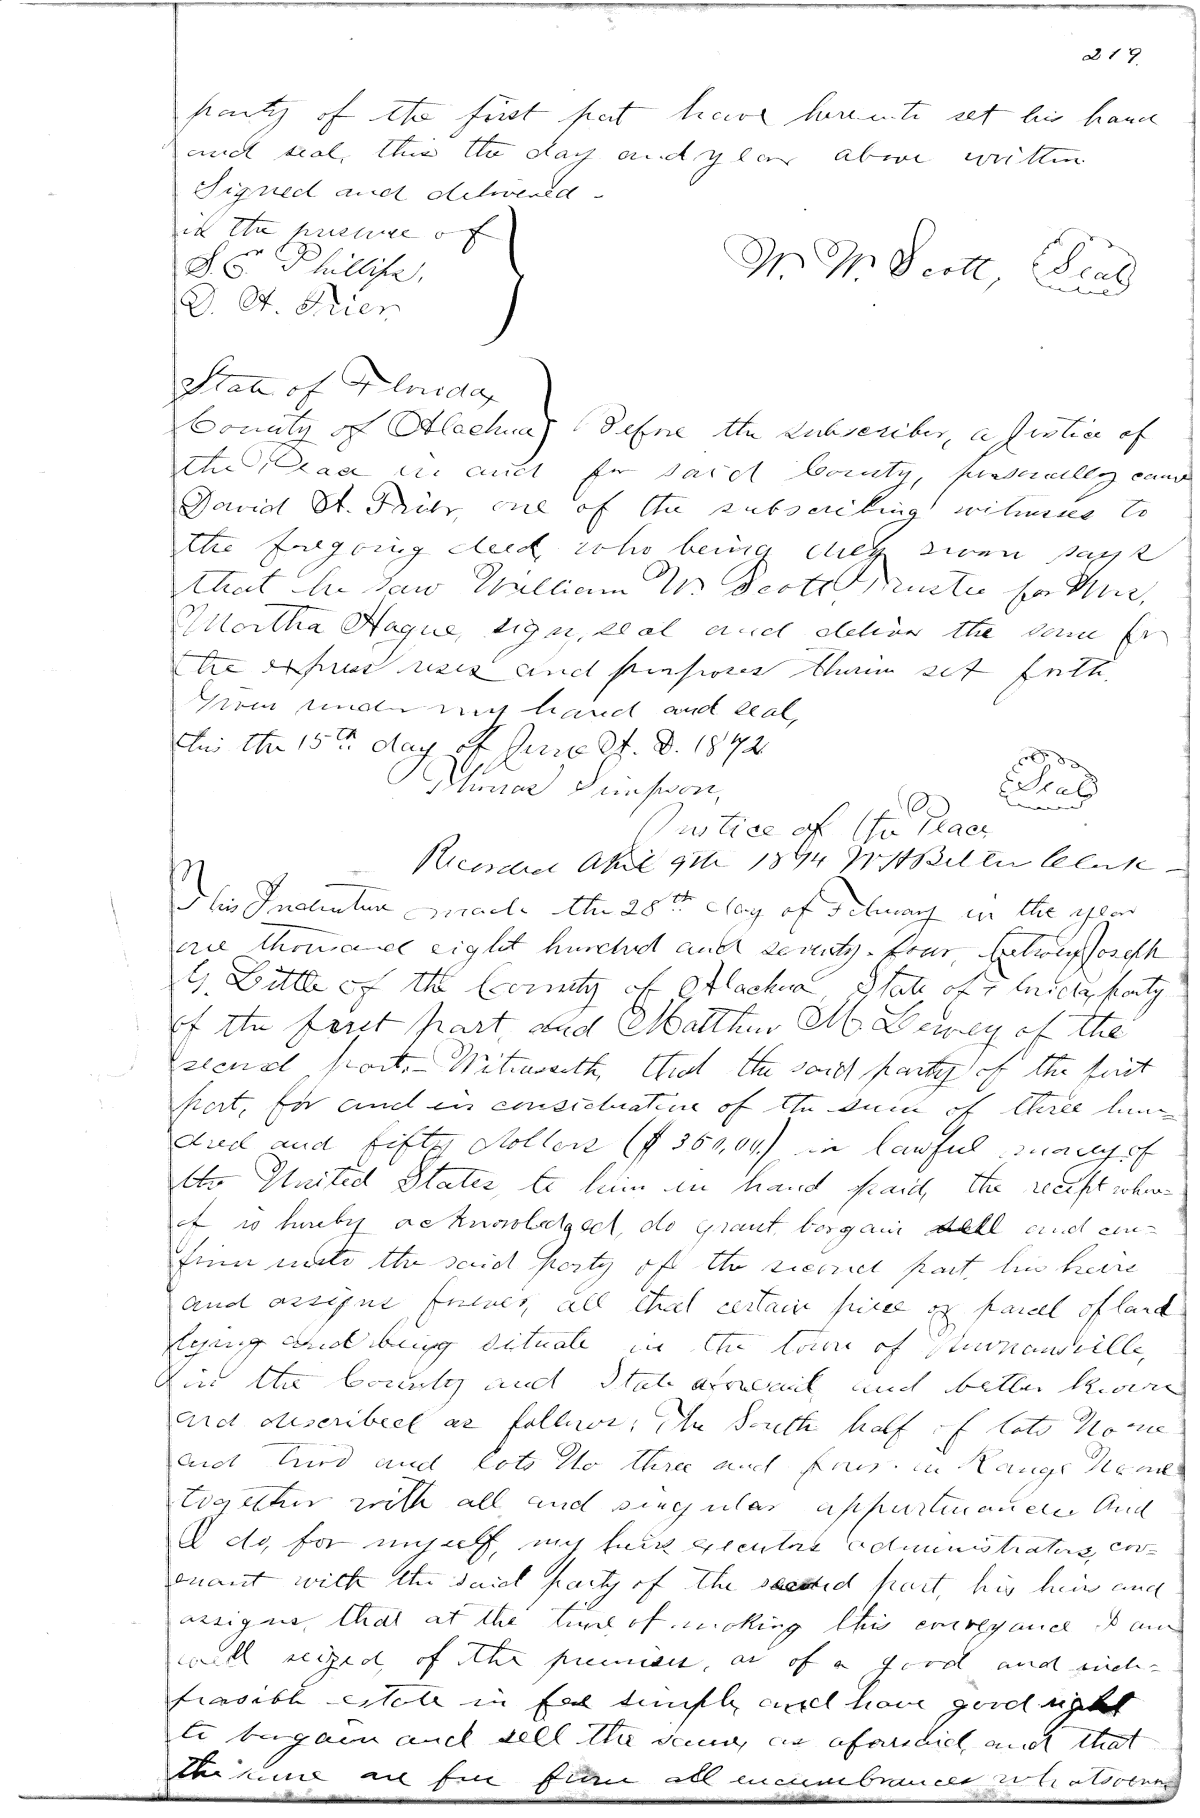 219.
party of the first part have hereunto set his hand
and seal, this the day and year above written
Signed and delivered -
in the presence of
S. C. Phillips,
D. A. Frier
W. W. Scott, Seal
State of Florida,
County of Alachua Before the subscriber, a Justice of
the Peace in and for said County, personally came
David A. Frier, one of the subscribing witnesses to
the foregoing deed, who being duly sworn says
that he saw William W. Scott, Trustee for Mrs.
Martha Hague, sign, seal and deliver the same for
the express uses and purposes therein set forth.
Given under my hand and seal,
this the 15th day of June A. D. 1872
Thomas Simpson, Seal
Justice of the Peace
Recorded April 9th 1874 W H Belton Clerk -
This Indenture made the 28th day of February in the year
one thousand eight hundred and seventy-four, between Joseph
G. Little of the County of Alachua, State of Florida, party
of the first part, and Matthew M. Lewey of the
second part. - Witnesseth, that the said party of the first
part, for and in consideration of the sum of three hun=
dred and fifty dollars ($350,00,) in lawful money of
the United States, to him in hand paid, the receipt where=
of is hereby acknowledged, do grant, bargain sell and con=
firm unto the said party of the second part, his heirs
and assigns forever, all that certain piece or parcel of land
lying and being situate in the town of Newnansville,
in the County and State aforesaid, and better known
and described as follows: The South half of lots No one
and two and lots No three and four in Range No one
together with all and singular appurtenances And
I do, for myself, my heirs executors administrators, cov=
enant with the said party of the second part, his heirs and
assigns, that at the time of making this conveyance I am
well seized, of the premises, as of a good and inde=
feasible estate in fee simple, and have good right
to bargain and sell the same, as aforesaid, and that
the same are free from all encumbrances whatsoever